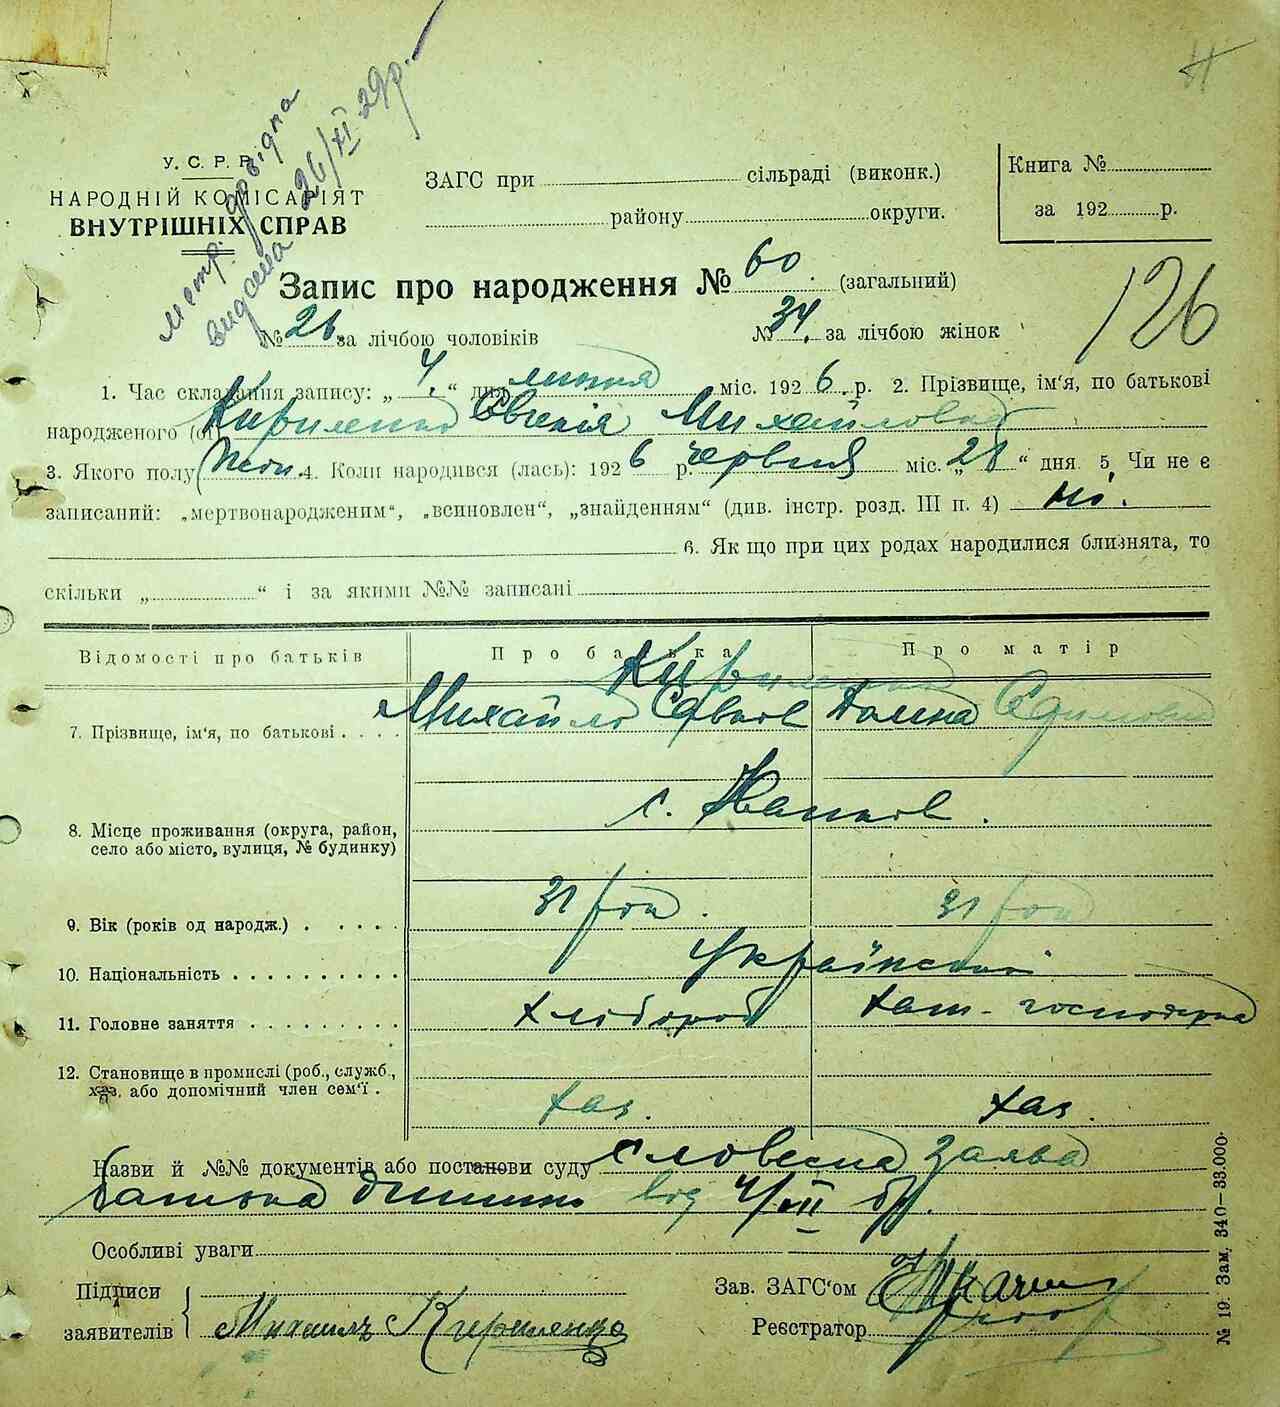 метр. довідка
видана 26/XI 29р.
У. С. Р. Р.
НАРОДНІЙ КОМІСАРІЯТ
ВНУТРІШНІХ СПРАВ
ЗАГС при сільраді (виконк.)
району округи.
Книга №
за 192 р.
Запис про народження № 60 (загальний)
126
№ 26 за лічбою чоловіків № 34 за лічбою жінок
1. Час складання запису: „ 4 “ дня липня міс. 1926 р. 2. Прізвище, ім'я, по батькові
народженого (ої) Кириленко Євгенія Михайловна
3. Якого полу жін. 4. Коли народився (лась): 1926 р. червня міс. „ 28 “ дня. 5. Чи не є
записаний: „мертвонародженим“, „всиновлен“, „знайденням“ (див. інстр. розд. III п. 4) ні.
6. Як що при цих родах народилися близнята, то
скільки „ “ і за якими №№ записані
Відомості про батьків Про батька Про матір
Кириленко
7. Прізвище, ім'я, по батькові . . . . Михайло Савков
с. Іванков.
8. Місце проживання (округа, район,
село або місто, вулиця, № будинку)
9. Вік (років од народж.) . . . . . 31 рок. 31 рок
10. Національність . . . . . . . . . . українській
11. Головне заняття . . . . . . . . . хлібороб хат. господарка
12. Становище в промислі (роб., служб.,
хаз. або допомічний член сем'ї . хаз. хаз.
Назви й №№ документів або постанови суду словесна заява
батька дитини від 4/VII бр.
Особливі уваги
Підписи
заявителів Михаилъ Кириленко
Зав. ЗАГС'ом
Реєстратор
№ 19. Зам. 340—33.000.